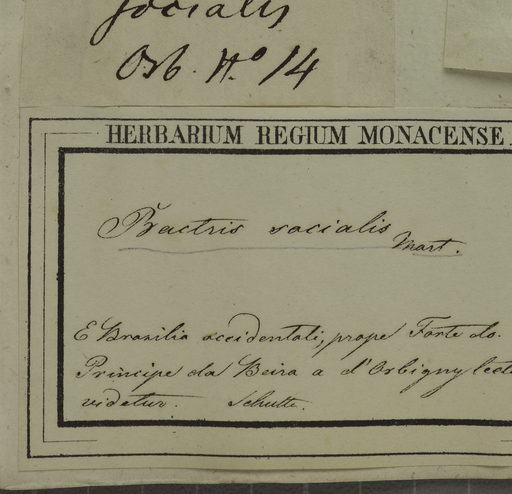 socialis
Orb. No 14
HERBARIUM REGIUM MONACENSE.
Bactris socialis
Mart.
E Brasilia occidentali, prope Forte do
Principe da Beira a d'Orbigny lecta
videtur. Schultz.